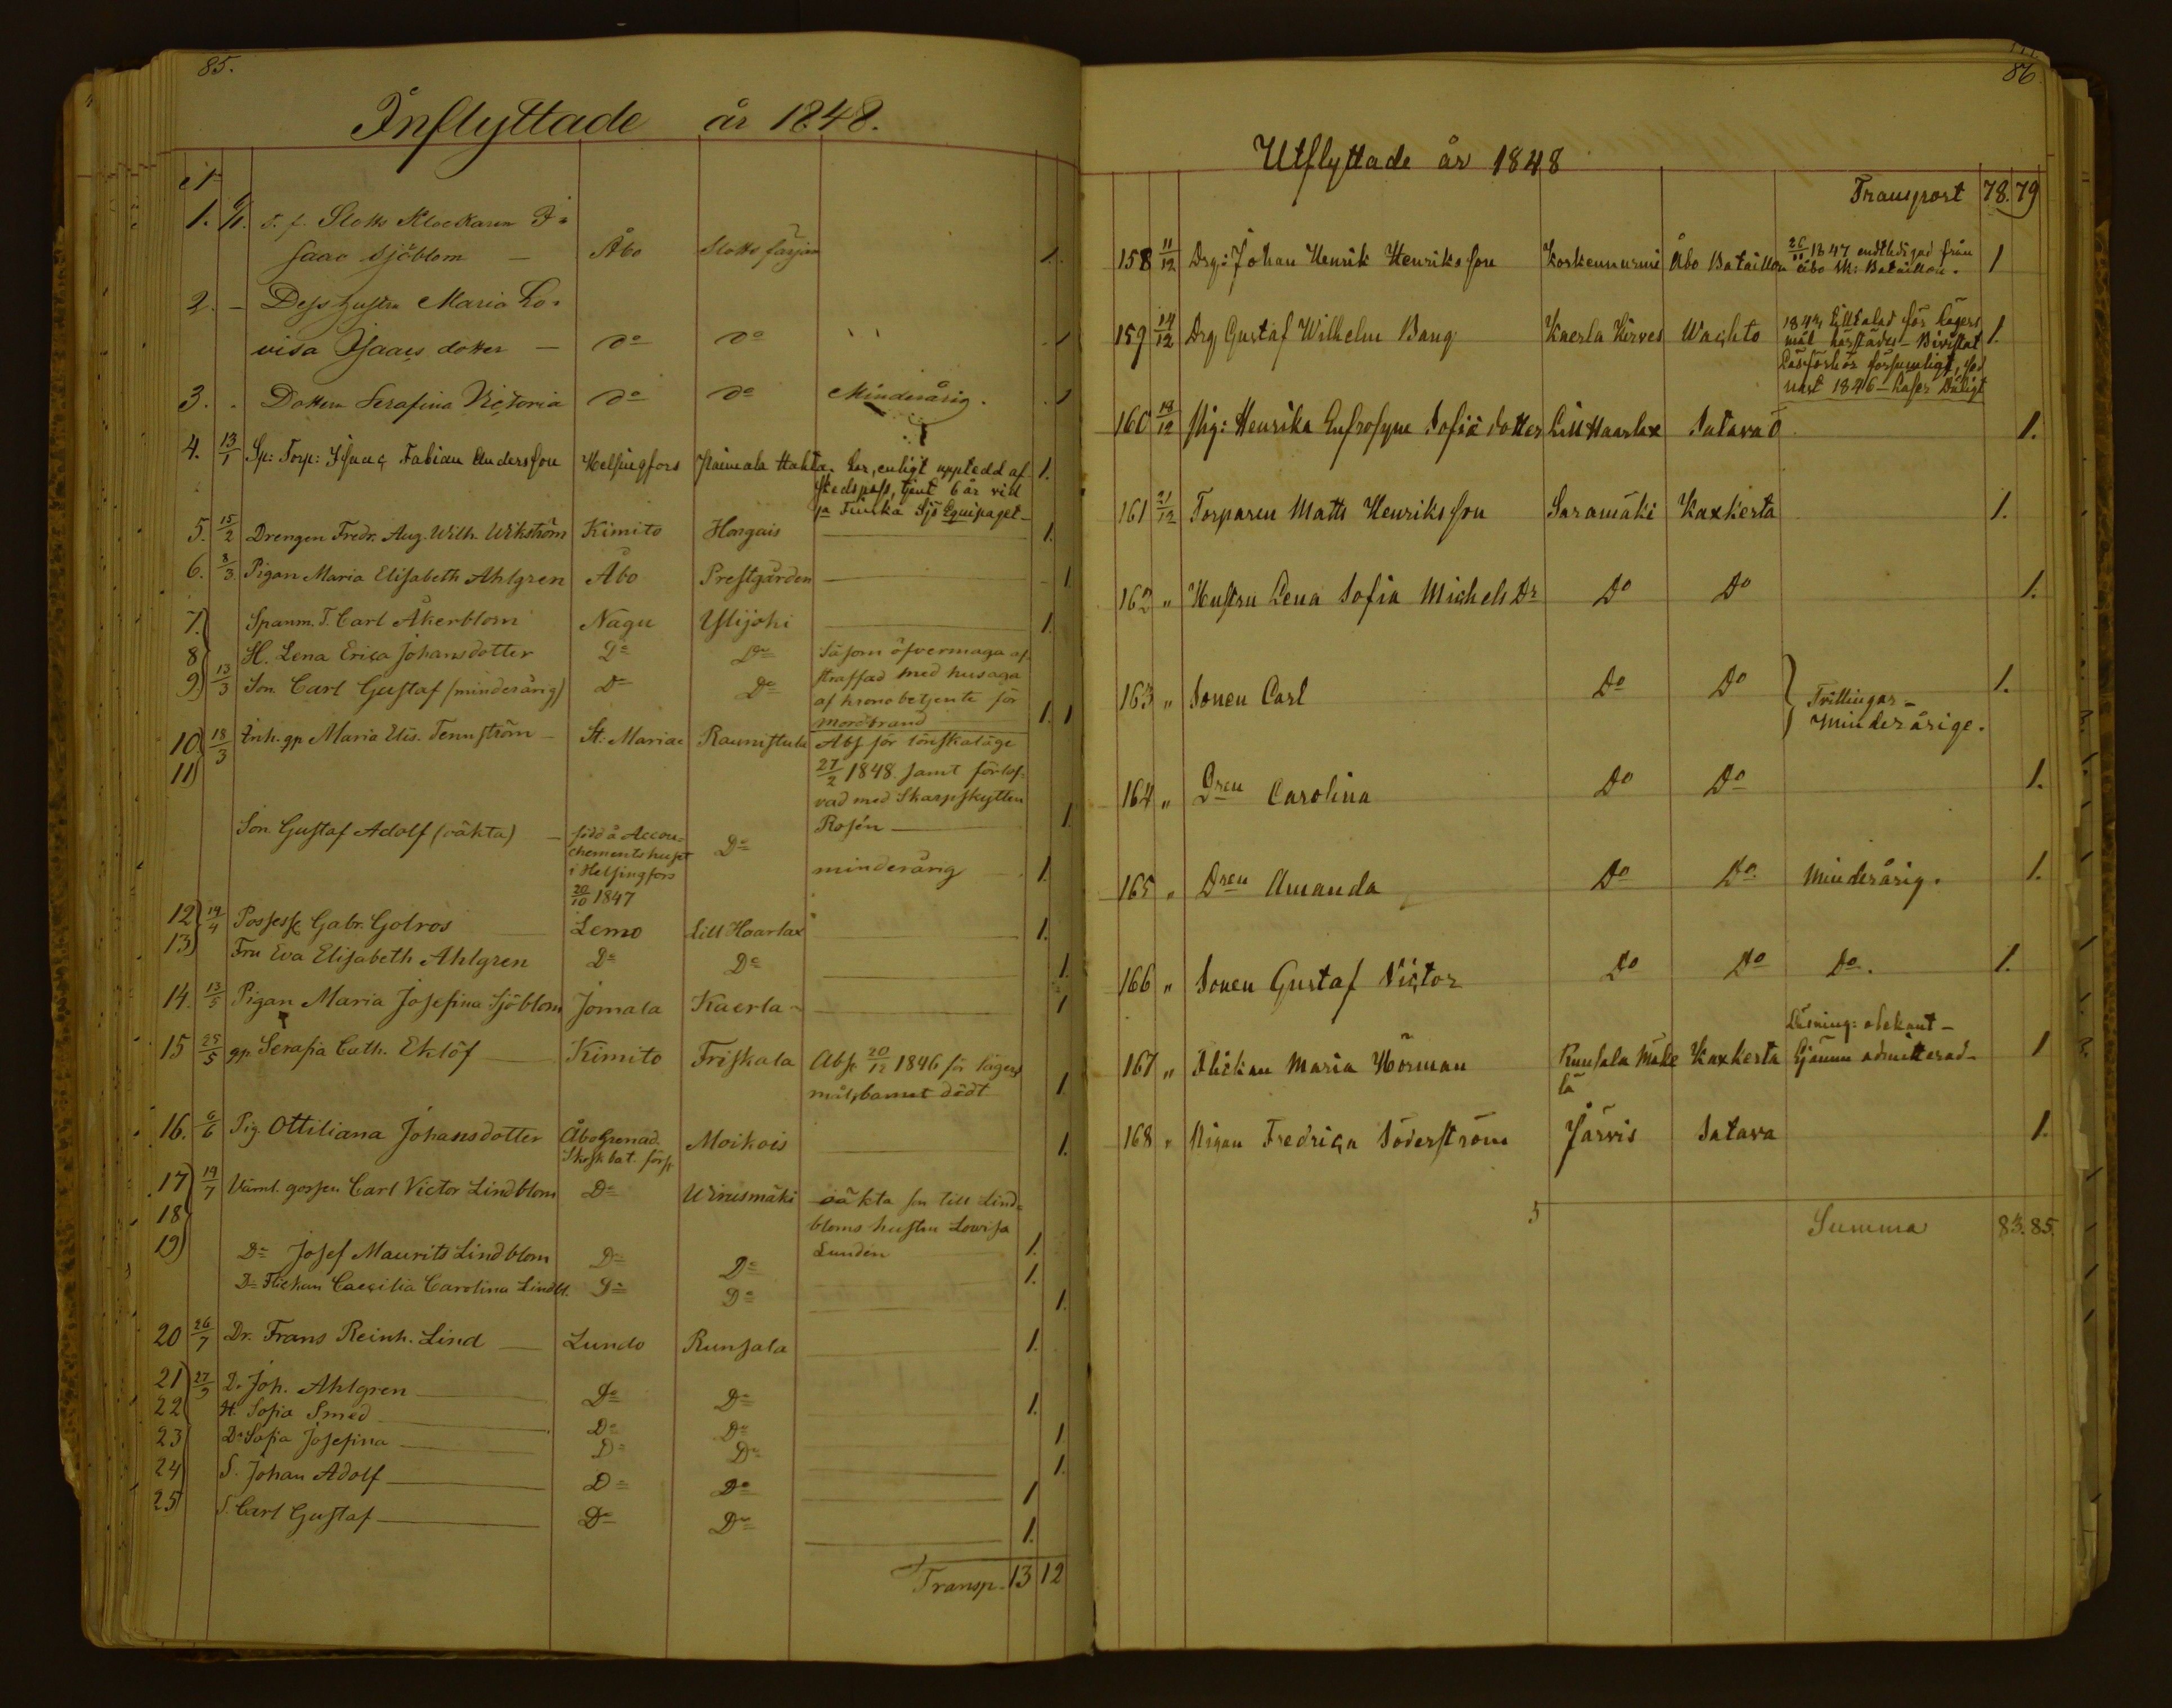 85.
Inflyttade år 1848.
1. d. f. Slotts Klockaren I=
saac Sjöblom — Åbo Slotts färjan 1.
2. — Dess hustru Maria Lo=
visa Isaacs dotter — Do Do 1
3. Dottern Serafina Victoria Do Do Minderårig. 1
4. 13/1 Sp: Torp: Isaac Fabian Andersson Helsingfors Haimala Hakta. Har, enligt uppledd af= 1.
skedspass, tjent 6 år vid
1a Finska Sjö Equipaget_
5. 15/2 Drengen Fredr. Aug. Wilh. Wikström Kimito Horgais 1.
6. 8/3 Pigan Maria Elisabeth Ahlgren Åbo Prestgården 1
7. Spanm. T. Carl Åkerblom Nagu Ylijoki 1.
8 H. Lena Erica Johansdotter Do Do Såsom öfvermaga af=
9) 13/3 Son. Carl Gustaf (minderårig) Do Do straffad med husaga
af kronobetjente för
mordbrand 1. 1
10. 18/3 Inh. gp Maria Elis. Tennström — St. Mariae Raunistula Abs för lönskaläge
11) 27/2 1848. samt förlof=
vad med Skarpskytten
Rosén — 1.
Son. Gustaf Adolf (oäkta) — född å Accou= Do minderårig 1.
chementshuset
i Helsingfors
20/10 1847
12 19/4 Possess. Gabr. Golros Lemo Lill Haarlax 1.
13) Fru Eva Elisabeth Ahlgren Do Do 1.
14. 13/5 Pigan Maria Josefina Sjöblom Jomala Kaerla 1
15 25/5 gp Serafia Cath. Eklöf Kimito Friskala Abs. 20/12 1846 för lägers
mål, barnet dödt 1
16. 6/6 Pig. Ottiliana Johansdotter Åbo Grenad. Moikois 1.
Skpsk bat. förs.
17) 19/7 Värnl. gossen Carl Victor Lindblom Do Wirusmäki oäkta son till Lind=
18 bloms hustru Lovisa
Lunden 1.
19) Do Josef Maurits Lindblom Do Do 1.
Do Flickan Caecilia Carolina Lindbl. Do Do 1.
20 26/7 Dr. Frans Reinh. Lind Lundo Runsala 1.
21) 27/9 Joh. Ahlgren Do Do 1.
22 H. Sofia Smed Do Do 1
23 Dr Sofia Josefina Do Do 1.
24) S. Johan Adolf Do Do 1
25 S. Carl Gustaf Do Do 1.
Transp. 13 12
86
Utflyttade år 1848
Transport 78. 79
158 11/12 Drg: Johan Henrik Henriksson Koskennurmi Åbo Bataillon 26/11 1847 endtledigad från 1
Åbo Sk: Bataillon.
159 14/12 Drg Gustaf Wilhelm Bang Kaerla Kirves Wachto 1844 tilltalad för lägers 1.
mål härstädes — Bivistat
Läsförhör försumligt, sed
nast 1846 — Läser Dåligt
160 18/12 Pig: Henrika Eufrosyne Sofiä dotter Lill Haarlax Satava ö 1.
161 21/12 Torparen Matts Henriksson Saramäki Kaxkerta 1.
162 " Hustru Lena Sofia Michels Dr Do Do 1.
163 " Sonen Carl Do Do Trillingar — 1.
Minderårige.
164 " Dren Carolina Do Do 1.
165 " Dren Amanda Do Do Minderårig. 1.
166 " Sonen Gustaf Victor Do Do Do. 1.
167 " Flickan Maria Norman Runsala Kaxkerta Läsning: obekant — 1
Ejännu admitterad—
168 " Pigan Fredrica Söderström Järvis Satava 1.
5
Summa 83. 85.